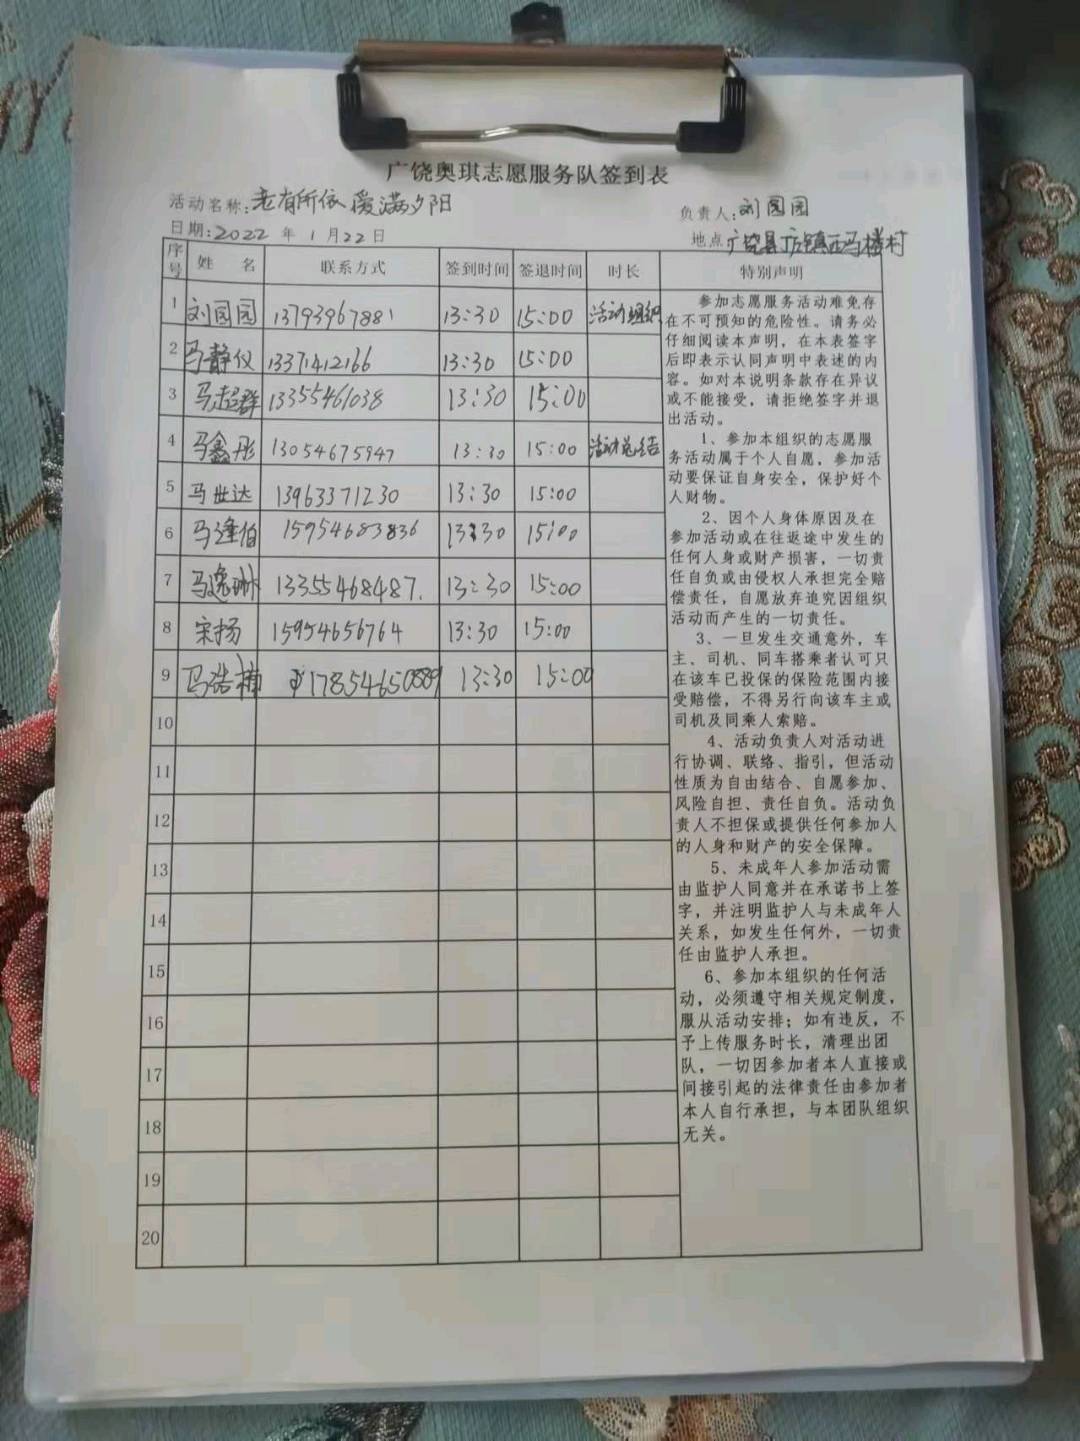 广饶奥琪志愿服务队签到表
活动名称:老有所依 爱满夕阳 负责人:刘园园
日期:2022 年 1 月 22 日 地点 广饶县 镇西马楼村
序号 姓 名 联系方式 签到时间 签退时间 时长 特别声明
1 刘园园 13793967881 13:30 15:00 活动组织
2 马静仪 13371412166 13:30 15:00
3 马超群 13355461038 13:30 15:00
4 马鑫彤 13054675947 13:30 15:00 活动总结
5 马世达 13963371230 13:30 15:00
6 马逢伯 15954683836 13:30 15:00
7 马逸琳 13355468487. 13:30 15:00
8 宋扬 15954656764 13:30 15:00
9 马浩楠 17854650889 13:30 15:00
10
11
12
13
14
15
16
17
18
19
20
参加志愿服务活动难免存
在不可预知的危险性。请务必
仔细阅读本声明，在本表签字
后即表示认同声明中表述的内
容。如对本说明条款存在异议
或不能接受，请拒绝签字并退
出活动。
1、参加本组织的志愿服
务活动属于个人自愿，参加活
动要保证自身安全，保护好个
人财物。
2、因个人身体原因及在
参加活动或在往返途中发生的
任何人身或财产损害，一切责
任自负或由侵权人承担完全赔
偿责任，自愿放弃追究因组织
活动而产生的一切责任。
3、一旦发生交通意外，车
主、司机、同车搭乘者认可只
在该车已投保的保险范围内接
受赔偿，不得另行向该车主或
司机及同乘人索赔。
4、活动负责人对活动进
行协调、联络、指引，但活动
性质为自由结合、自愿参加、
风险自担、责任自负。活动负
责人不担保或提供任何参加人
的人身和财产的安全保障。
5、未成年人参加活动需
由监护人同意并在承诺书上签
字，并注明监护人与未成年人
关系，如发生任何外，一切责
任由监护人承担。
6、参加本组织的任何活
动，必须遵守相关规定制度，
服从活动安排；如有违反，不
予上传服务时长，清理出团
队，一切因参加者本人直接或
间接引起的法律责任由参加者
本人自行承担，与本团队组织
无关。